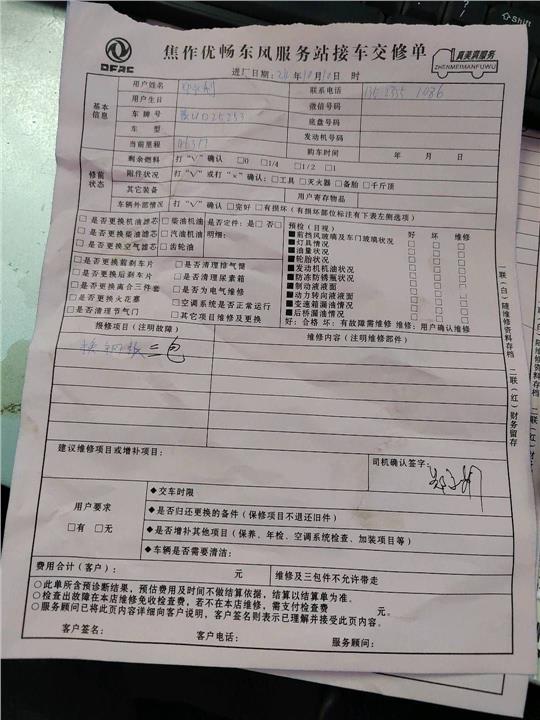 DFAC
焦作优畅东风服务站接车交修单
真美真服务
ZHENMEIZHENFUWU
进厂日期: 年10月10日 时
基本信息
用户姓名
联系电话
用户生日
微信号码
车牌号
底盘号码
车型
发动机号码
当前里程
购车时间 年 月 日
修前状态
剩余燃料 打“√”确认 □0 □1/4 □1/2 □1
附件状况 打“√”或打“×”确认:□工具 □灭火器 □备胎 □千斤顶
其它装备 用户寄存物品
车辆外部情况 打“√”确认:□完好 □有损坏(有损坏部位标注右下表左侧选项)
□是否更换机油滤芯 □柴油机油 是否定件:是□否□
□是否更换柴油滤芯 □汽油机油 明细:
□是否更换空气滤芯 □齿轮油
□是否更换前刹车片 □是否清理排气筒
□是否更换后刹车片 □是否清理尿素箱
□是否更换离合三件套 □是否为电气维修
□是否更换火花塞 □空调系统是否正常运行
□是否清理节气门 □其它项目维修及更换
预检(目视) 好 坏 维修
■前挡风玻璃及车门玻璃状况 □ □ □
■灯具情况 □ □ □
■油量状况 □ □ □
■轮胎状况 □ □ □
■发动机机油状况 □ □ □
■防冻防锈液状况 □ □ □
■制动液液面 □ □ □
■动力转向液液面 □ □ □
■变速箱漏油情况 □ □ □
■后桥漏油情况 □ □ □
好:合格 坏:有故障需维修 维修:用户确认维修
报修项目(注明故障)
维修内容(注明维修部件)
换钢板 三包
建议维修项目或增补项目:
司机确认签字:
用户要求
□有 □无
◆交车时限
◆是否归还更换的备件(保修项目不退还旧件)
◆是否增补其他项目(保养、年检、空调系统检查、加装项目等)
◆车辆是否需要清洁:
费用合计(客户): 元 维修及三包件不允许带走
○此单所含预诊断结果,预估费用及时间不做结算依据,结算以结算单为准。
○检查出故障在本店维修免收检查费,若不在本店维修,需支付检查费 元。
○服务顾问已将此页内容详细向客户说明,客户签名则表示已理解并接受此页内容。
客户签名: 客户电话: 服务顾问:
一联(白)随维修资料存档 二联(红)财务留存